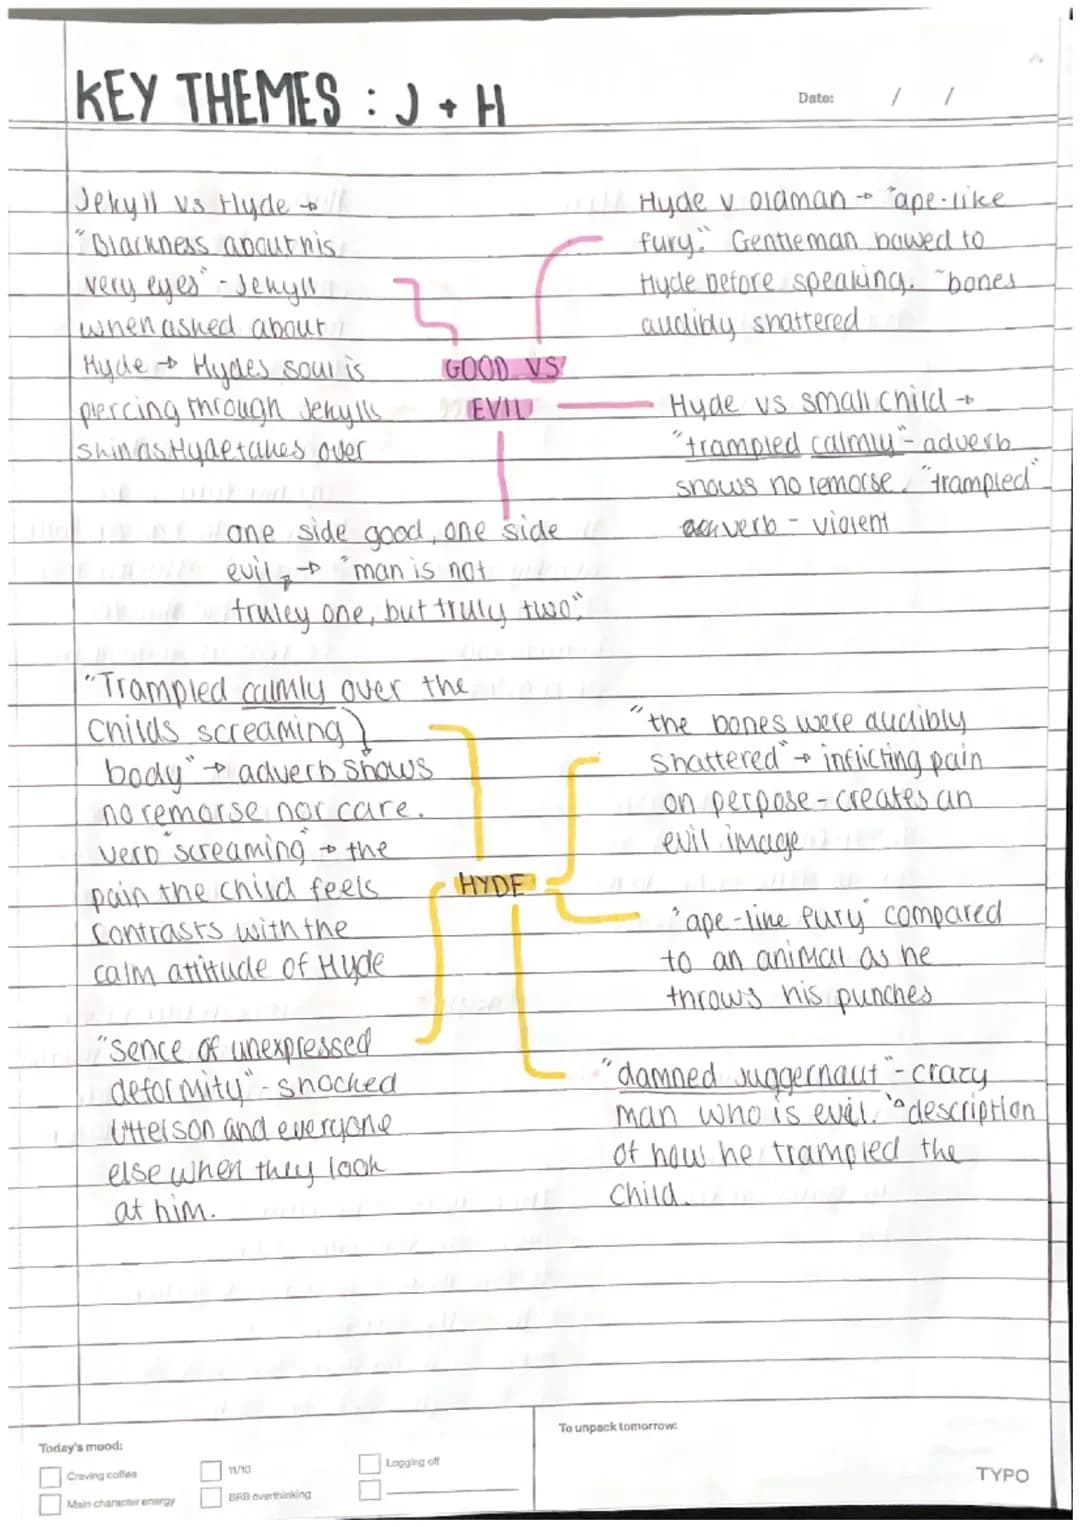 KEY THEMES : J + H
Date: / /
Jekyll vs Hyde →
"Blackness about his
very eyes" - Jekyll
when asked about
Hyde → Hydes soul is
piercing through Jekylls
skin as Hyde takes over
Hyde v oldman → "ape-like
fury." Gentleman bowed to
Hyde before speaking. "bones
audibly shattered
GOOD VS
EVIL
Hyde vs small child →
"trampled calmly" - adverb
shows no remorse. "trampled"
verb - violent
one side good, one side
evil → "man is not
truley one, but truly two."
"Trampled calmly over the
childs screaming
body" → adverb shows
no remorse nor care.
verb "screaming" → the
pain the child feels
contrasts with the
calm attitude of Hyde
"the bones were audibly
shattered" → inflicting pain
on perpose - creates an
evil image
HYDE
'ape-like fury' compared
to an animal as he
throws his punches
"sence of unexpressed
deformity" - shocked
Utterson and everyone
else when they look
at him.
"damned juggernaut" - crazy
man who is evil. description
of how he trampled the
child.
Today's mood:
Craving coffee
11/10
Logging off
Main character energy
BRB overthinking
To unpack tomorrow:
TYPO